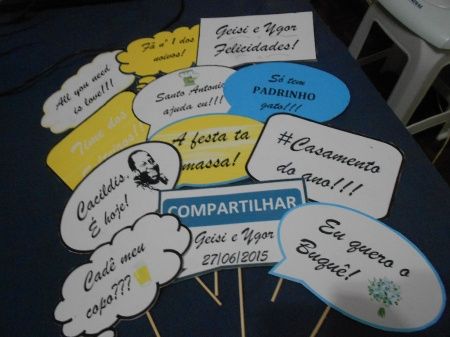 Fã nº 1 dos
noivos!
Geisi e Ygor
Felicidades!
All you need
is love!!!
Santo Antonio
ajuda eu!!!
Só tem
PADRINHO
gato!!!
Time dos
A festa ta
massa!
#Casamento
do ano!!!
Cacildis.
É hoje!
COMPARTILHAR
Geisi e Ygor
27/06/2015
Cadê meu
copo???
Eu quero o
Buquê!